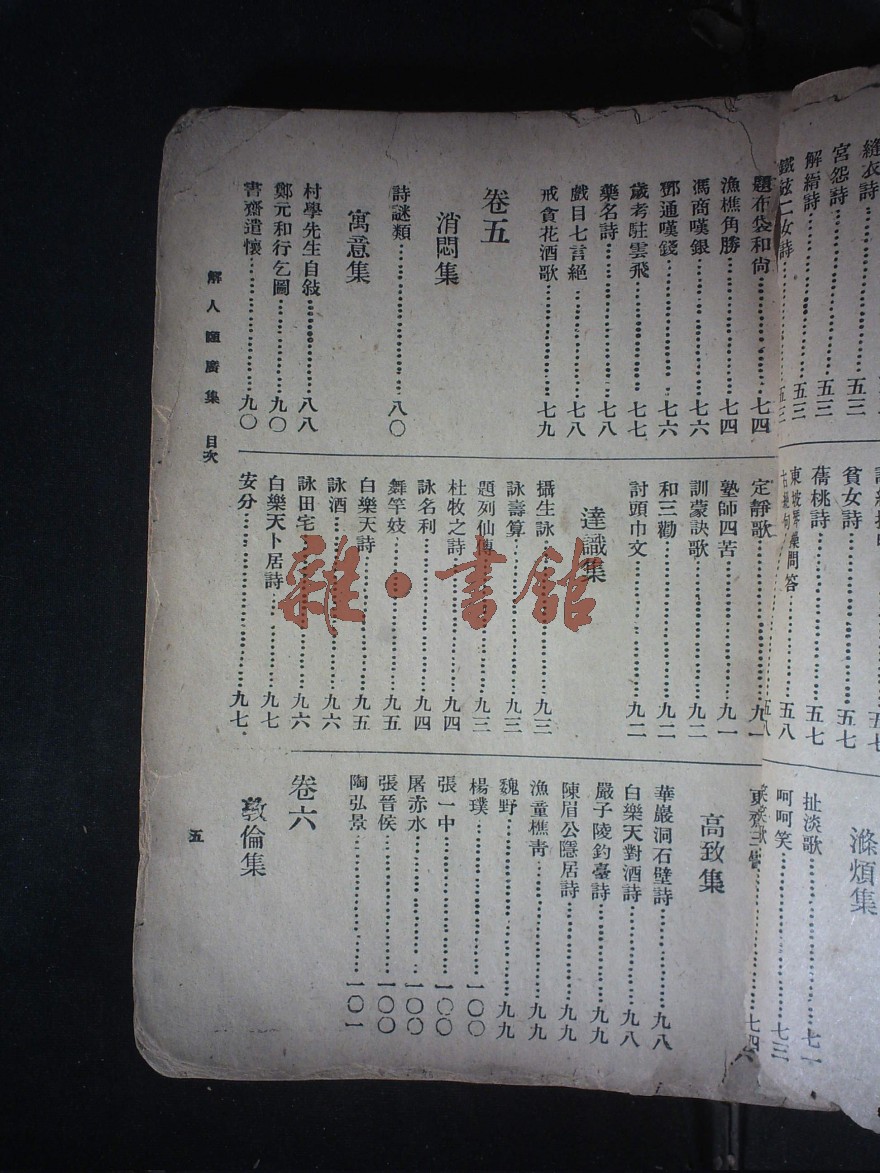 縫衣詩
宮怨詩……五三
解縉詩……五三
鐵鉉二女詩……五三
貧女詩……五七
蒨桃詩……五七
問答……五八
滌煩集
扯淡歌……七一
呵呵笑……七三
題布袋和尙……七四
漁樵角勝……七四
馮商嘆銀……七六
鄧通嘆錢……七六
歲考駐雲飛……七七
藥名詩……七八
戲目七言絕……七八
戒貪花酒歌……七九
卷五
消悶集
詩謎類……八〇
寓意集
村學先生自敍……八八
鄭元和行乞圖……九〇
書齋遣懷……九〇
定靜歌……九一
塾師四苦……九一
訓蒙訣歌……九二
和三勸……九二
討頭巾文……九二
達識集
攝生詠……九三
詠壽算……九三
題列仙傳……九三
杜牧之詩……九四
詠名利……九四
舞竿妓……九五
白樂天詩……九五
詠酒……九六
詠田宅……九六
白樂天卜居詩……九七
安分……九七
高致集
華巖洞石壁詩……九八
白樂天對酒詩……九八
嚴子陵釣臺詩……九九
陳眉公隱居詩……九九
漁童樵青……九九
魏野……九九
楊璞……一〇〇
張一中……一〇〇
屠赤水……一〇〇
張晉侯……一〇〇
陶弘景……一〇一
卷六
敦倫集
解人頤廣集 目次
五
雜·書館